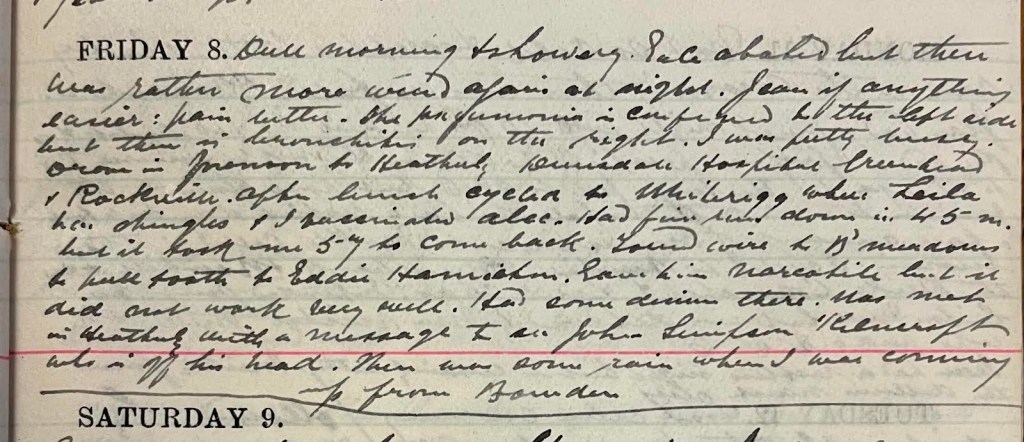 FRIDAY 8. Dull morning & showery. Gale abated but there
was rather more wind again at night. Jean if anything
easier: pain better. The pneumonia is confined to the left side
but there is bronchitis on the right. I was pretty busy.
Drove in forenoon to Heatherly Hospital Greenhead
& Rockville. After lunch cycled to Whiterigg where Leila
has shingles & I vaccinated Alec. Had fine run down in 45 m.
but it took me 57 to come back. Found wire to B'meadows
to pull tooth to Eddie Hamilton. Gave him narcotile but it
did not work very well. Had some dinner there. Was met
in with a message to see John Simpson
who is off his head. There was some rain when I was coming
up from Bowden
SATURDAY 9.